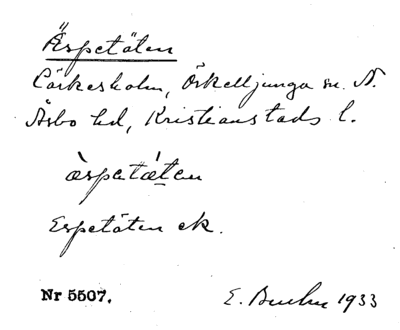 Äspetäten
Lärkesholm, Örkelljunga sn. N.
Åsbo hd, Kristianstads l.
àspetǽten
Espetäten ek.
Nr 5507.
E. 1933